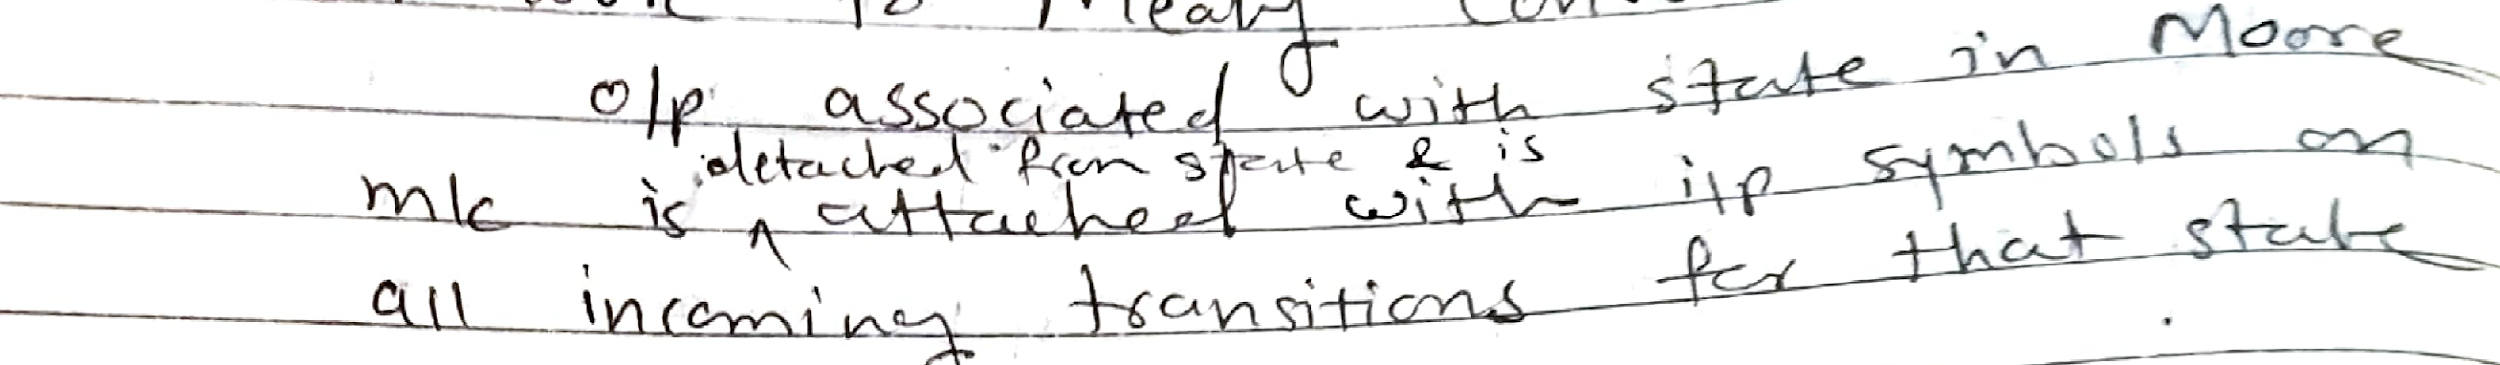 to Mealy
o/p associated with state in Moore
detached from state & is
m/c is ^ attached with i/p symbols on
all incoming transitions for that state.